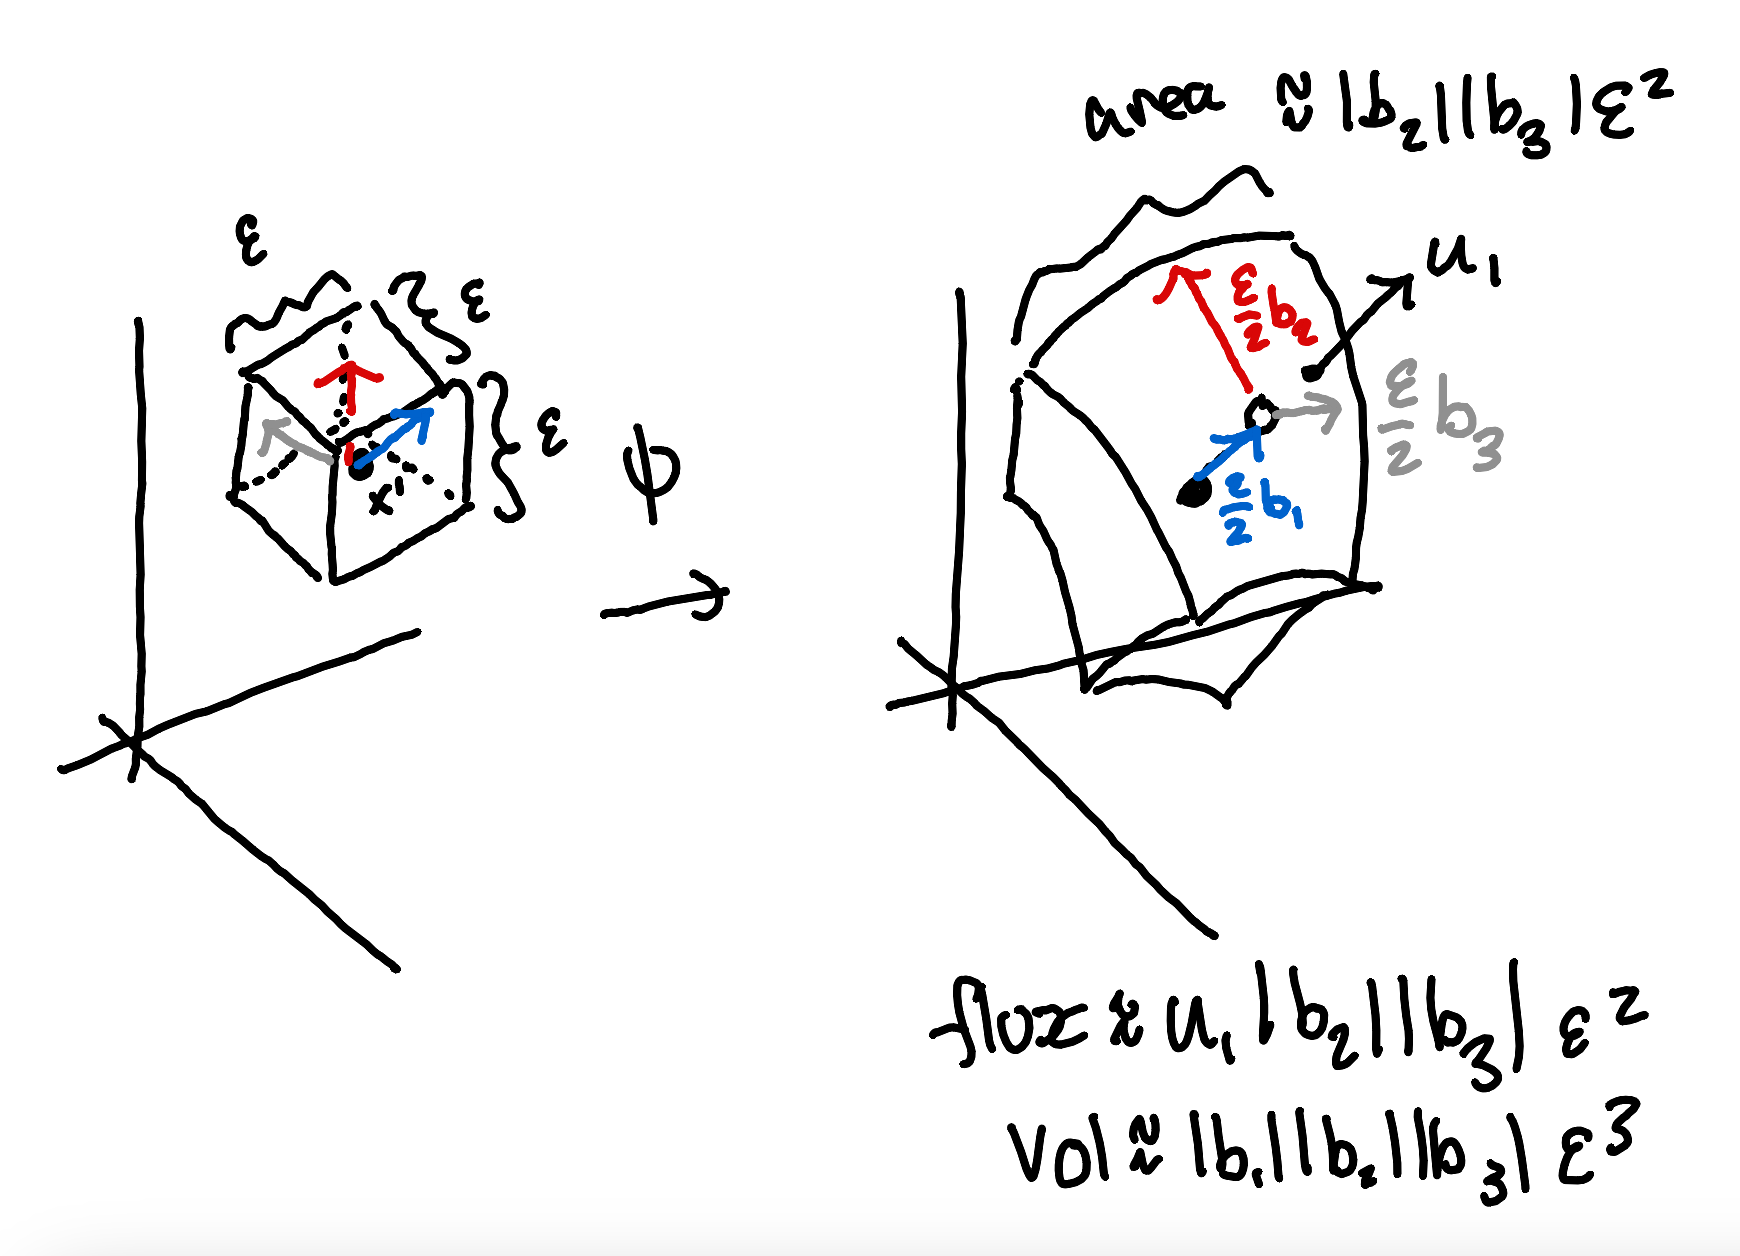 area ≈ |b₂||b₃|ε²
ε
ε
ε
x'
ψ
→
u₁
ε/2 b₂
ε/2 b₃
ε/2 b₁
flux ≈ u₁|b₂||b₃| ε²
Vol ≈ |b₁||b₂||b₃| ε³